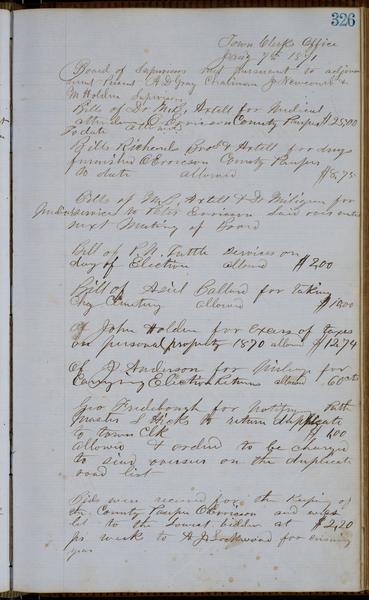 326
Town Clerks Office
Jany 7th 1871
Board of Supervisors met pursuant to adjourn
ment Present A D Gray Chairman J Newcomb &
M Holden Supervisors
Bills of Dr M P Axtell for Medical
attendance O Erricson County Pauper $25,00
To date allowed
Bills Richards Bro & Axtell for drugs
furnished O Erricson County Pauper
to date allowed $8,75
Bills of M P Axtell & Dr Milligan for
services to Peter Erricson laid over until
next Meeting of Board
Bill of P. N. Tuttle services on
day of Election allowed $2,00
Bill of Asiel Ballard for taking
Cemetery allowed $10,00
of John Holden for excess of taxes
on personal property 1870 allowed $12,74
of J Anderson for mileage for
Carrying Election Returns allowed 60cts
Geo Fridebough for notifying Path
master S Hicks to return duplicate
to town Clk $1,00
allowed & ordered to be charged
to said overseer on the duplicate
road list
Bids were received for the keeping of
the County Pauper O Erricson and was
let to the lowest bidder at $2,20
pr week to A J Lockwood for ensuing
year